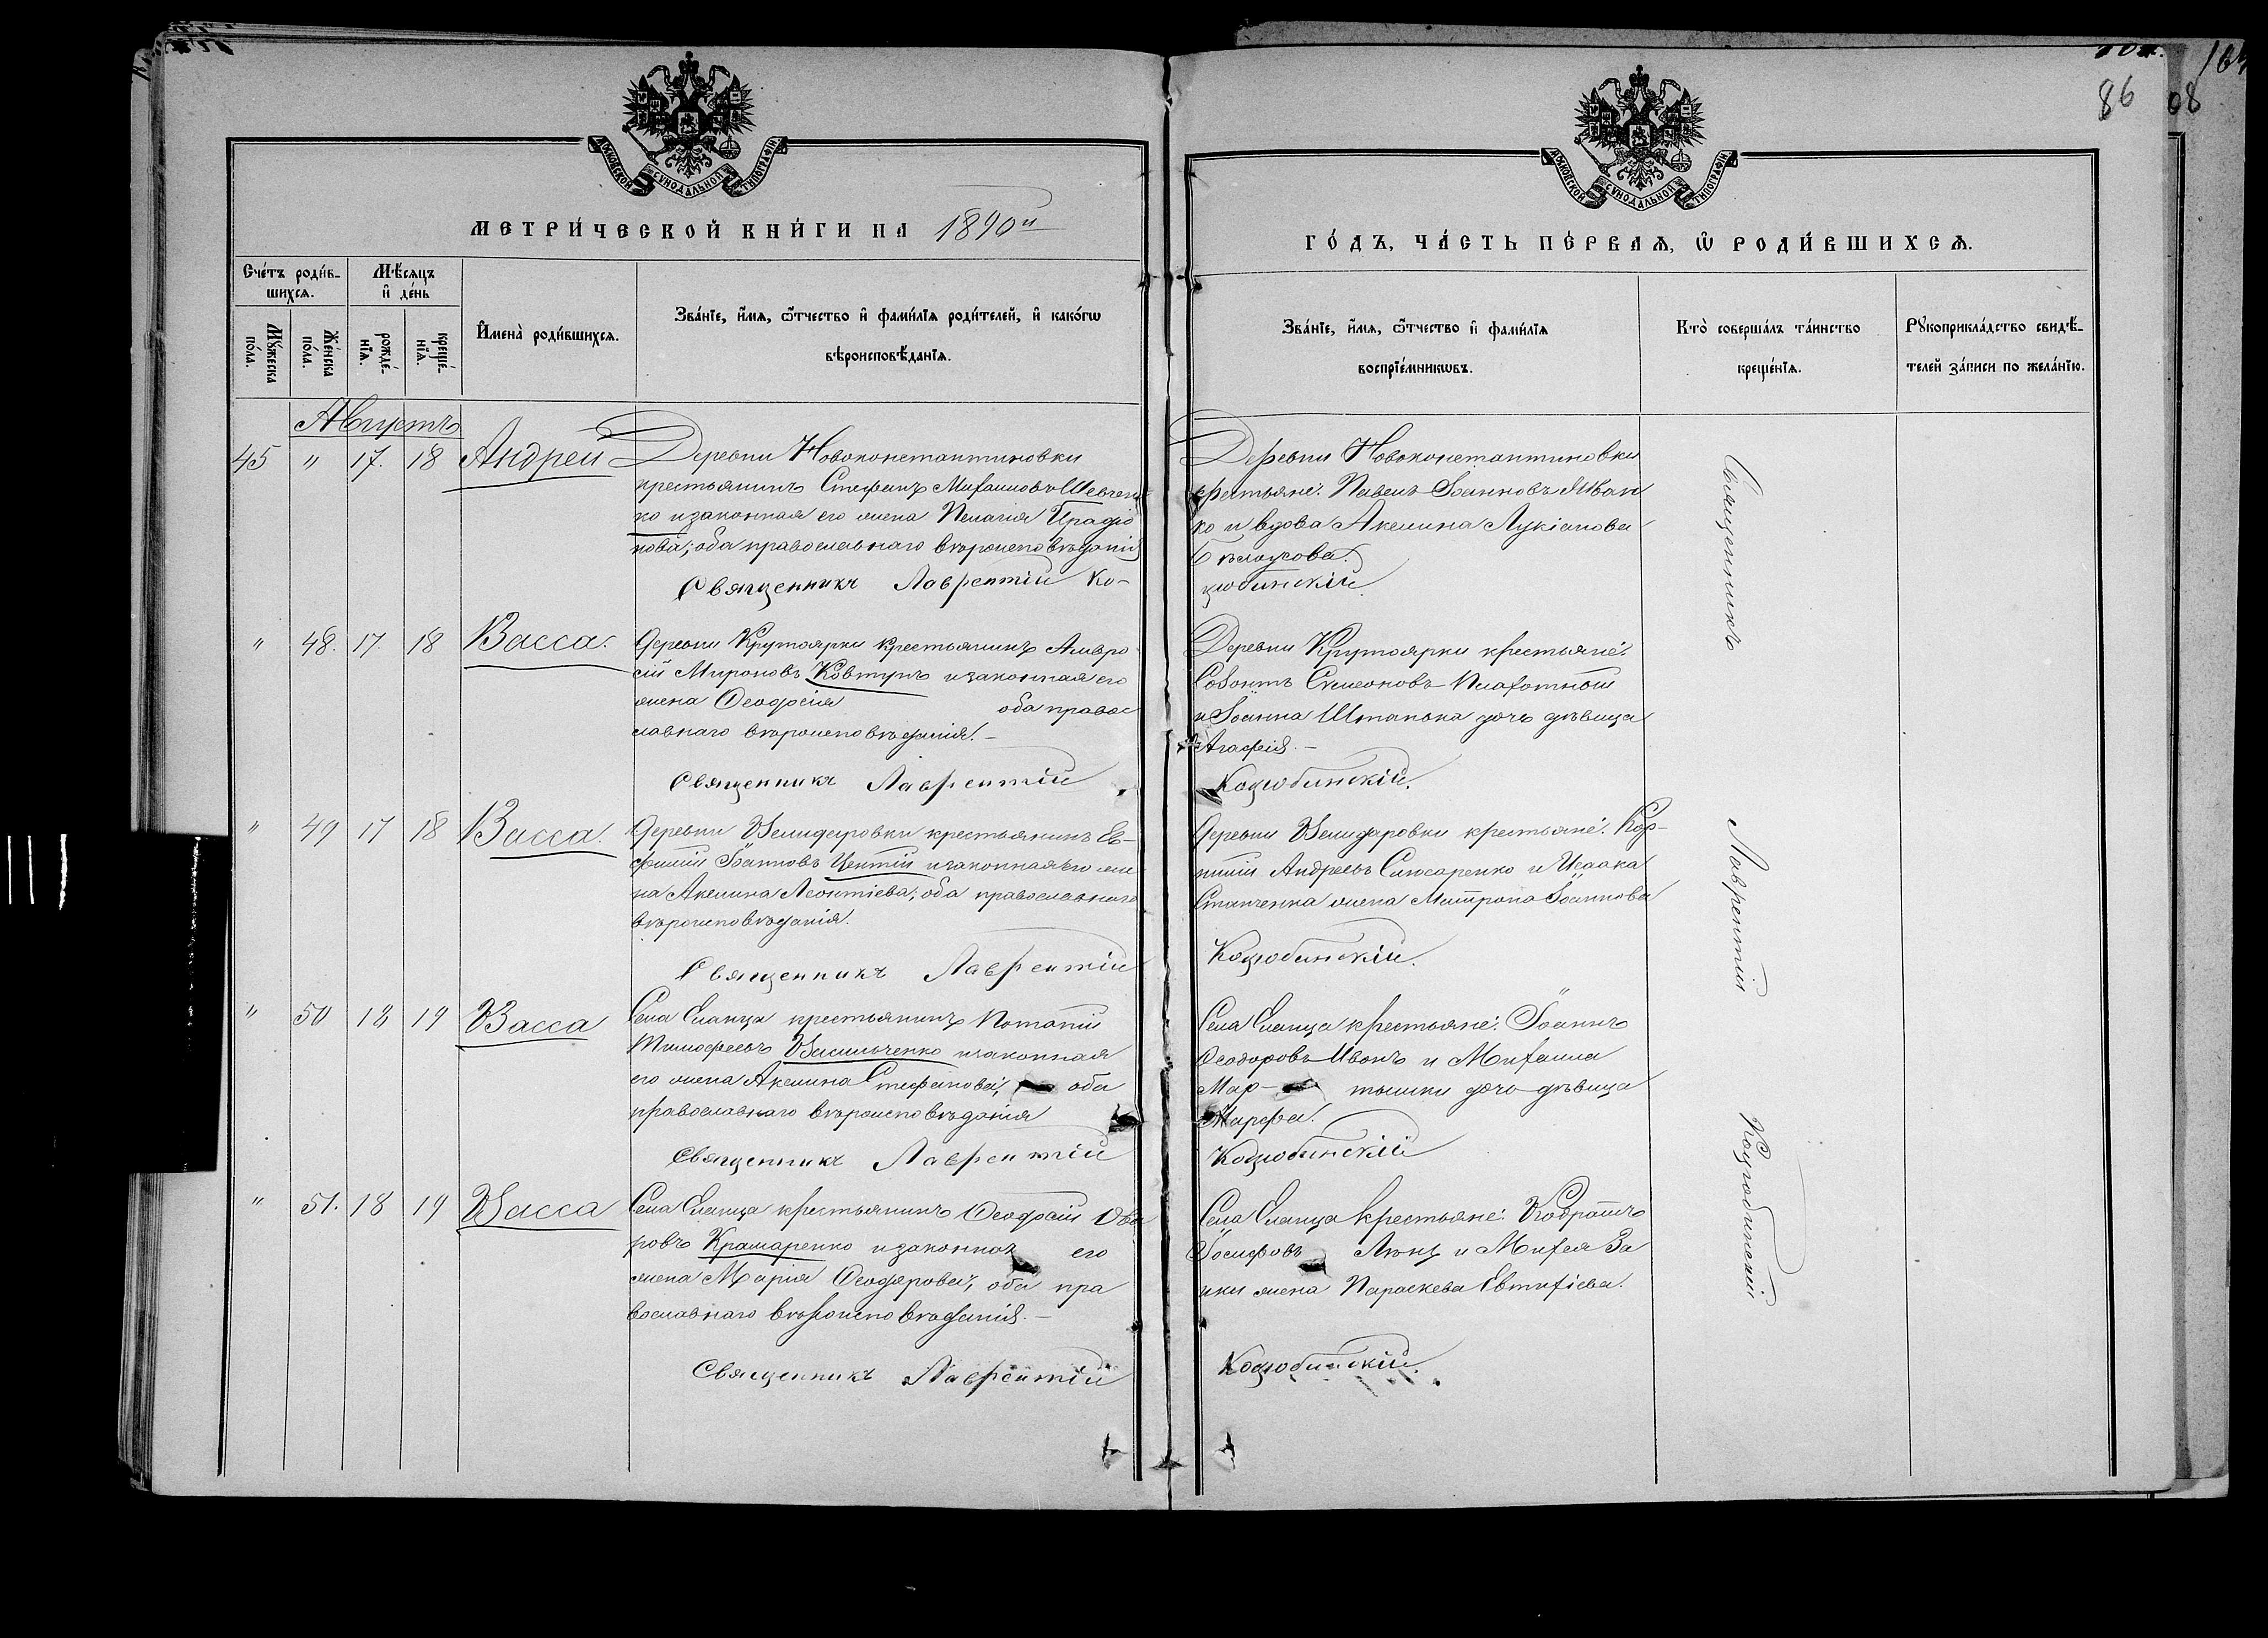 86
МОСКОВСКОЙ СѴНОДАЛЬНОЙ ТИПОГРАФІИ
МОСКОВСКОЙ СѴНОДАЛЬНОЙ ТИПОГРАФІИ
МЕТРИ́ЧЕСКОЙ КНИ́ГИ НА 1890й
ГО́ДЪ, ЧА́СТЬ ПЕ́РВАѦ, Ѿ РОДИ́ВШИХСѦ.
Сче́тъ роди́в-
шихсѧ.
Мѣ́сѧцъ
и҆ де́нь
Мꙋ́жеска
по́ла.
Же́нска
по́ла.
рожде́-
нїѧ.
креще́-
нїѧ.
И҆мена̀ роди́вшихсѧ.
Зва́нїе, и҆́мѧ, ѻ҆́тчество и҆ фами́лїѧ роди́телей, и҆ како́гѡ
вѣроисповѣ́данїѧ.
Зва́нїе, и҆́мѧ, ѻ҆́тчество и҆ фами́лїѧ
воспрїе́мникѡвъ.
Кто̀ соверша́лъ та́инство
креще́нїѧ.
Рꙋкоприкла́дство свидѣ́-
телей за́писи по жела́нїю.
Августъ
45 " 17. 18 Андрей
Деревни Новоконстантиновки
крестьянинъ Стефанъ Михаиловъ Шевчен
ко и законная его жена Пелагія Ирадіо
нова; оба православнаго вѣроисповѣданія
Священникъ Лаврентій Ко-
Деревни Новоконстантиновки
крестьяне: Павелъ Іоанновъ Иван
ко и вдова Акелина Лукіанова
Бѣлоусова.
цюбинскій.
" 48. 17. 18 Васса.
Деревни Крутоярки крестьянинъ Амвро
сій Мироновъ Ковтунъ и законная его
жена Ѳеодосія оба правос
лавнаго вѣроисповѣданія. –
Священникъ Лаврентій
Деревни Крутоярки крестьяне:
Созонтъ Симеоновъ
и Іоанна Штанька дочь дѣвица
Агафія. –
Коцюбинскій.
" 49 17 18 Васса.
Деревни Велидаровки крестьянинъ Ев-
фимій Іоанновъ Центій и законная его же
на Акелина Леонтіева; оба православнаго
вѣроисповѣданія.
Священникъ Лаврентій
Деревни Велидаровки крестьяне: Кор-
нилій Андреевъ Слюсаренко и Исаака
Степченка жена Матрона Іоаннова
Коцюбинскій.
" 50 18 19 Васса
Села Еланца крестьянинъ Потапій
Тимофеевъ Васильченко и законная
его жена Акелина Стефанова; оба
православнаго вѣроисповѣданія
Священникъ Лаврентій
Села Еланца крестьяне: Іоаннъ
Ѳеодоровъ Ивонъ и Михаила
Мар- тышки дочь дѣвица
Марфа.
Коцюбинскій
" 51. 18 19 Васса
Села Еланца крестьянинъ Ѳеодосій
ровъ Крамаренко и законная его
жена Марія Ѳеодорова; оба пра
вославнаго вѣроисповѣданія. –
Священникъ Лаврентій
Села Еланца крестьяне: Кодратъ
Іосифовъ и Михея За
ики жена Параскева Евтихіева.
Коцюбинскій.
Священникъ
Лаврентій
Коцюбинскій